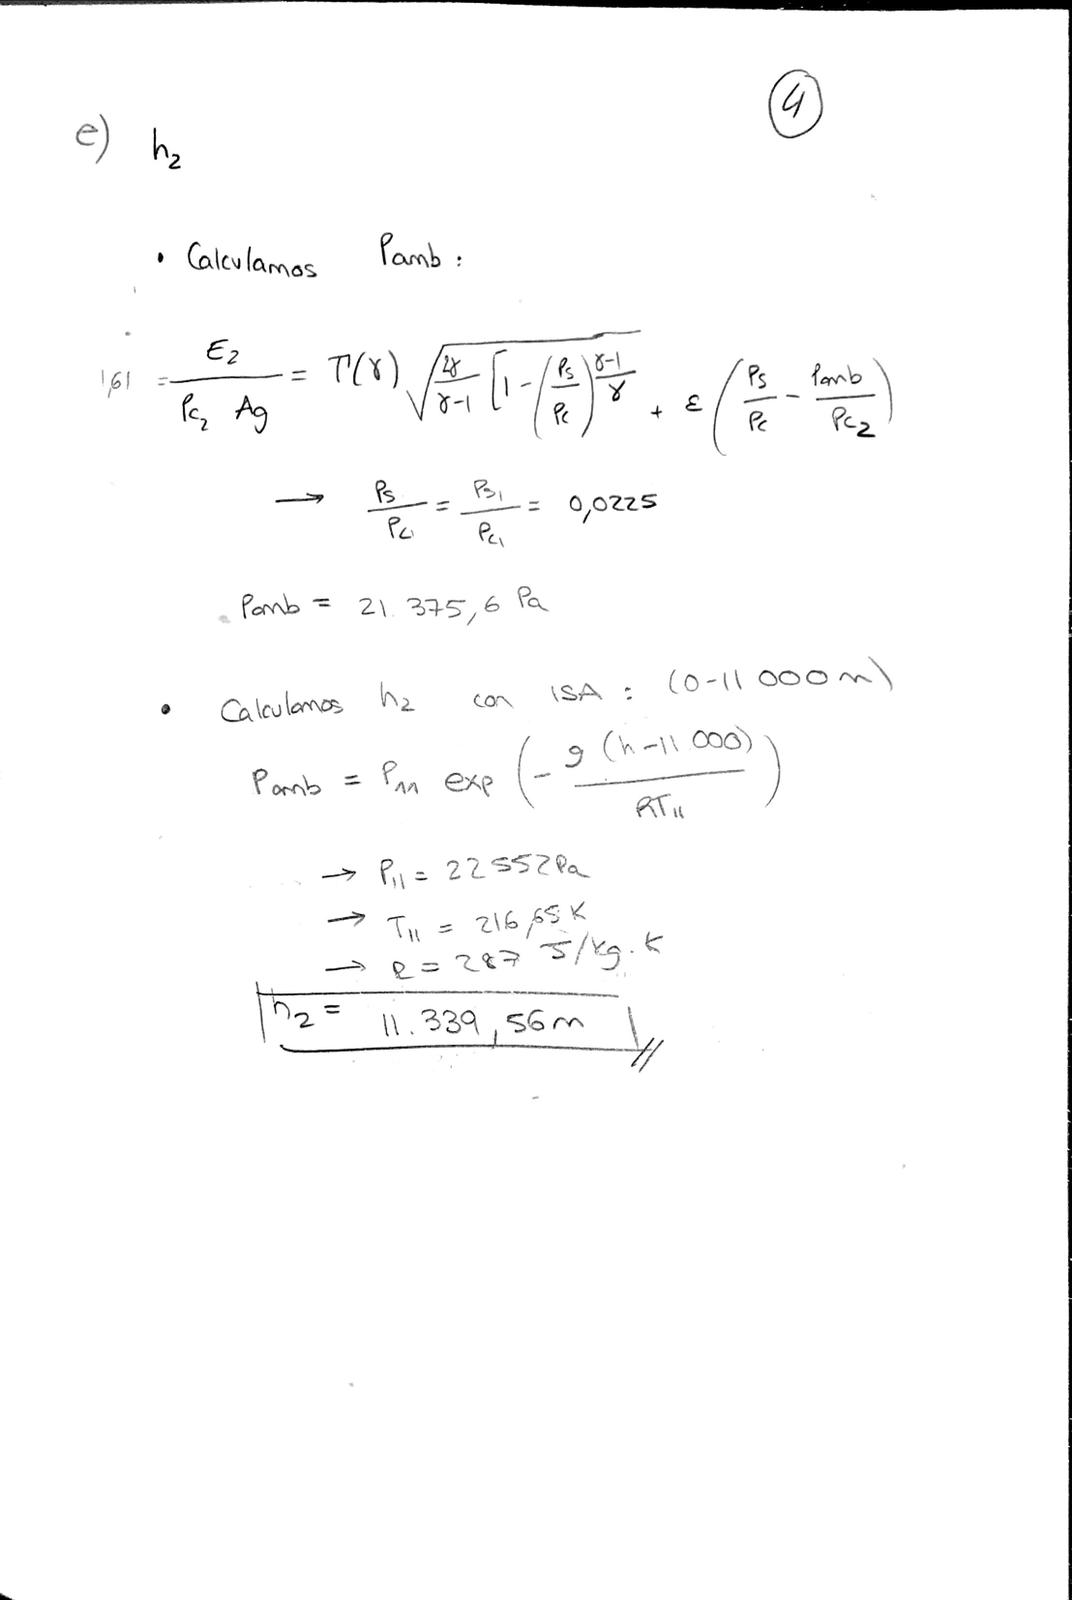 4
e) h₂
• Calculamos Pamb :
1,61 = E₂ / (Pc₂ Ag) = Γ(γ) √(2γ/(γ-1) [1-(Ps/Pc)^((γ-1)/γ) + ε (Ps/Pc - Pamb/Pc₂)
→ Ps/Pc = Ps₁/Pc₁ = 0,0225
Pamb = 21.375,6 Pa
• Calculamos h₂ con ISA : (0-11 000m)
Pamb = P₁₁ exp (- g (h-11 000) / RT₁₁)
→ P₁₁ = 22552Pa
→ T₁₁ = 216,65K
→ R = 287 J/kg.K
h₂ = 11.339,56m